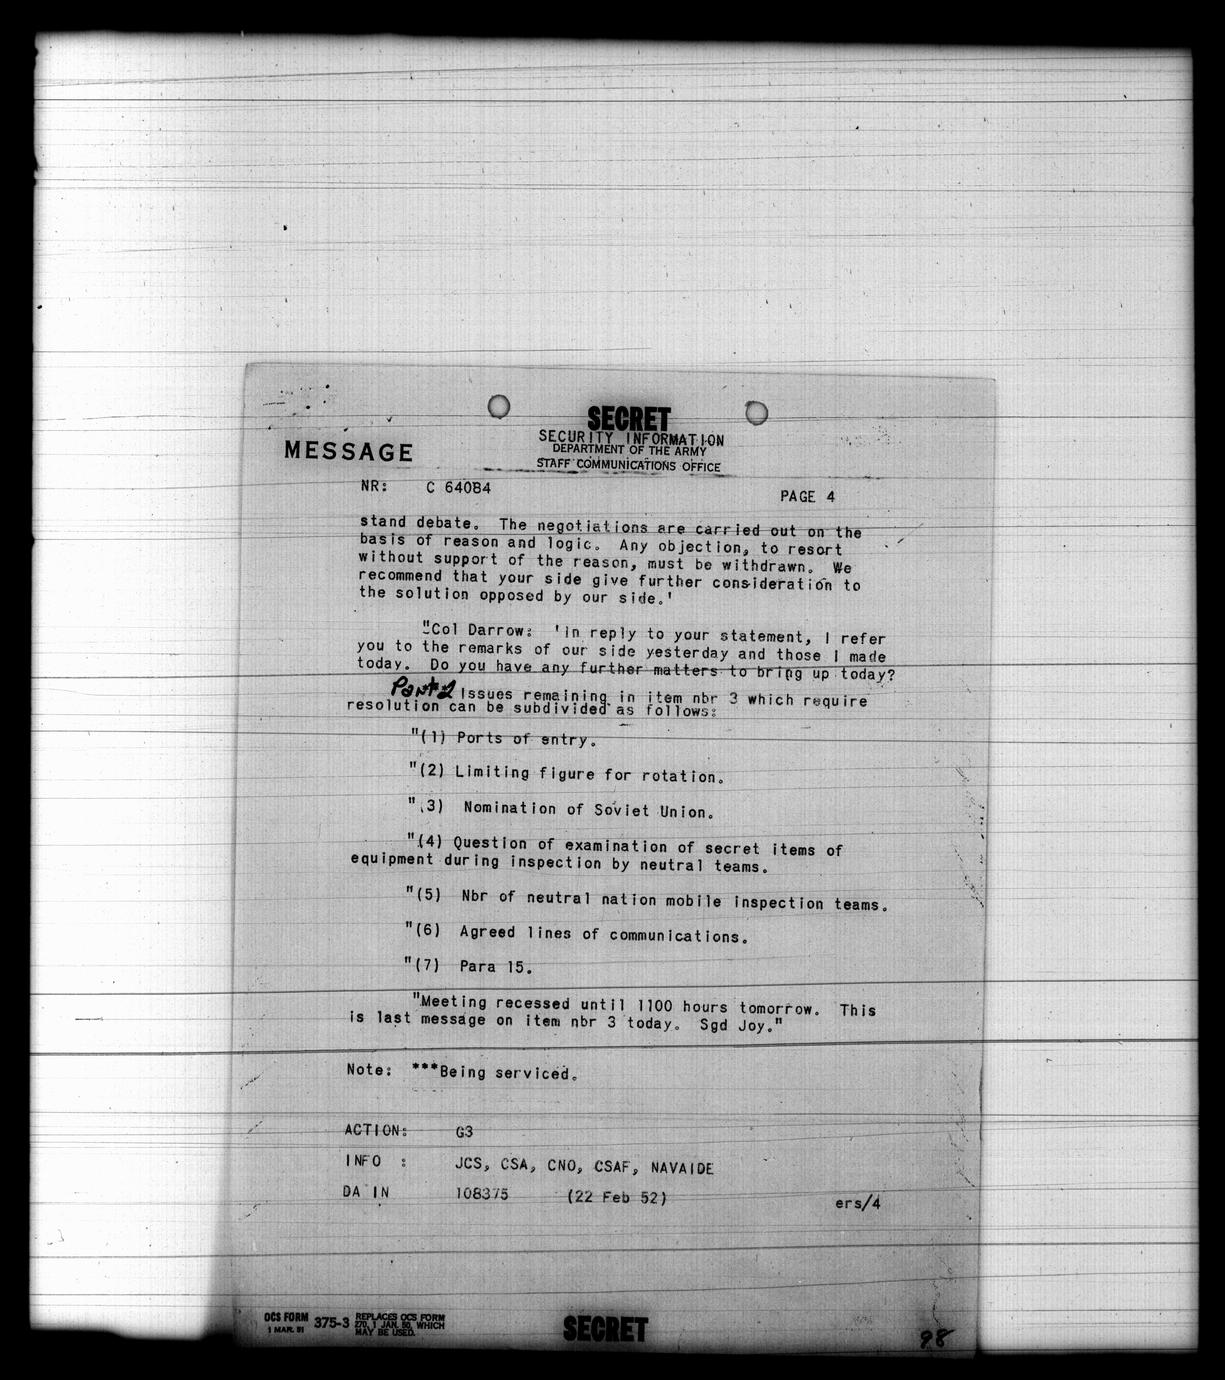 SECRET
SECURITY INFORMATION
DEPARTMENT OF THE ARMY
STAFF COMMUNICATIONS OFFICE
MESSAGE
NR: C 64084
PAGE 4
stand debate. The negotiations are carried out on the
basis of reason and logic. Any objection, to resort
without support of the reason, must be withdrawn. We
recommend that your side give further consideration to
the solution opposed by our side.'
"Col Darrow: 'In reply to your statement, I refer
you to the remarks of our side yesterday and those I made
today. Do you have any further matters to bring up today?
Part 2 Issues remaining in item nbr 3 which require
resolution can be subdivided as follows:
"(1) Ports of entry.
"(2) Limiting figure for rotation.
"(3) Nomination of Soviet Union.
"(4) Question of examination of secret items of
equipment during inspection by neutral teams.
"(5) Nbr of neutral nation mobile inspection teams.
"(6) Agreed lines of communications.
"(7) Para 15.
"Meeting recessed until 1100 hours tomorrow. This
is last message on item nbr 3 today. Sgd Joy."
Note: ***Being serviced.
ACTION: G3
INFO : JCS, CSA, CNO, CSAF, NAVAIDE
DA IN 108375 (22 Feb 52) ers/4
OCS FORM 375-3 REPLACES OCS FORM
1 MAR. 51 270, 1 JAN. 50, WHICH
MAY BE USED.
SECRET
98